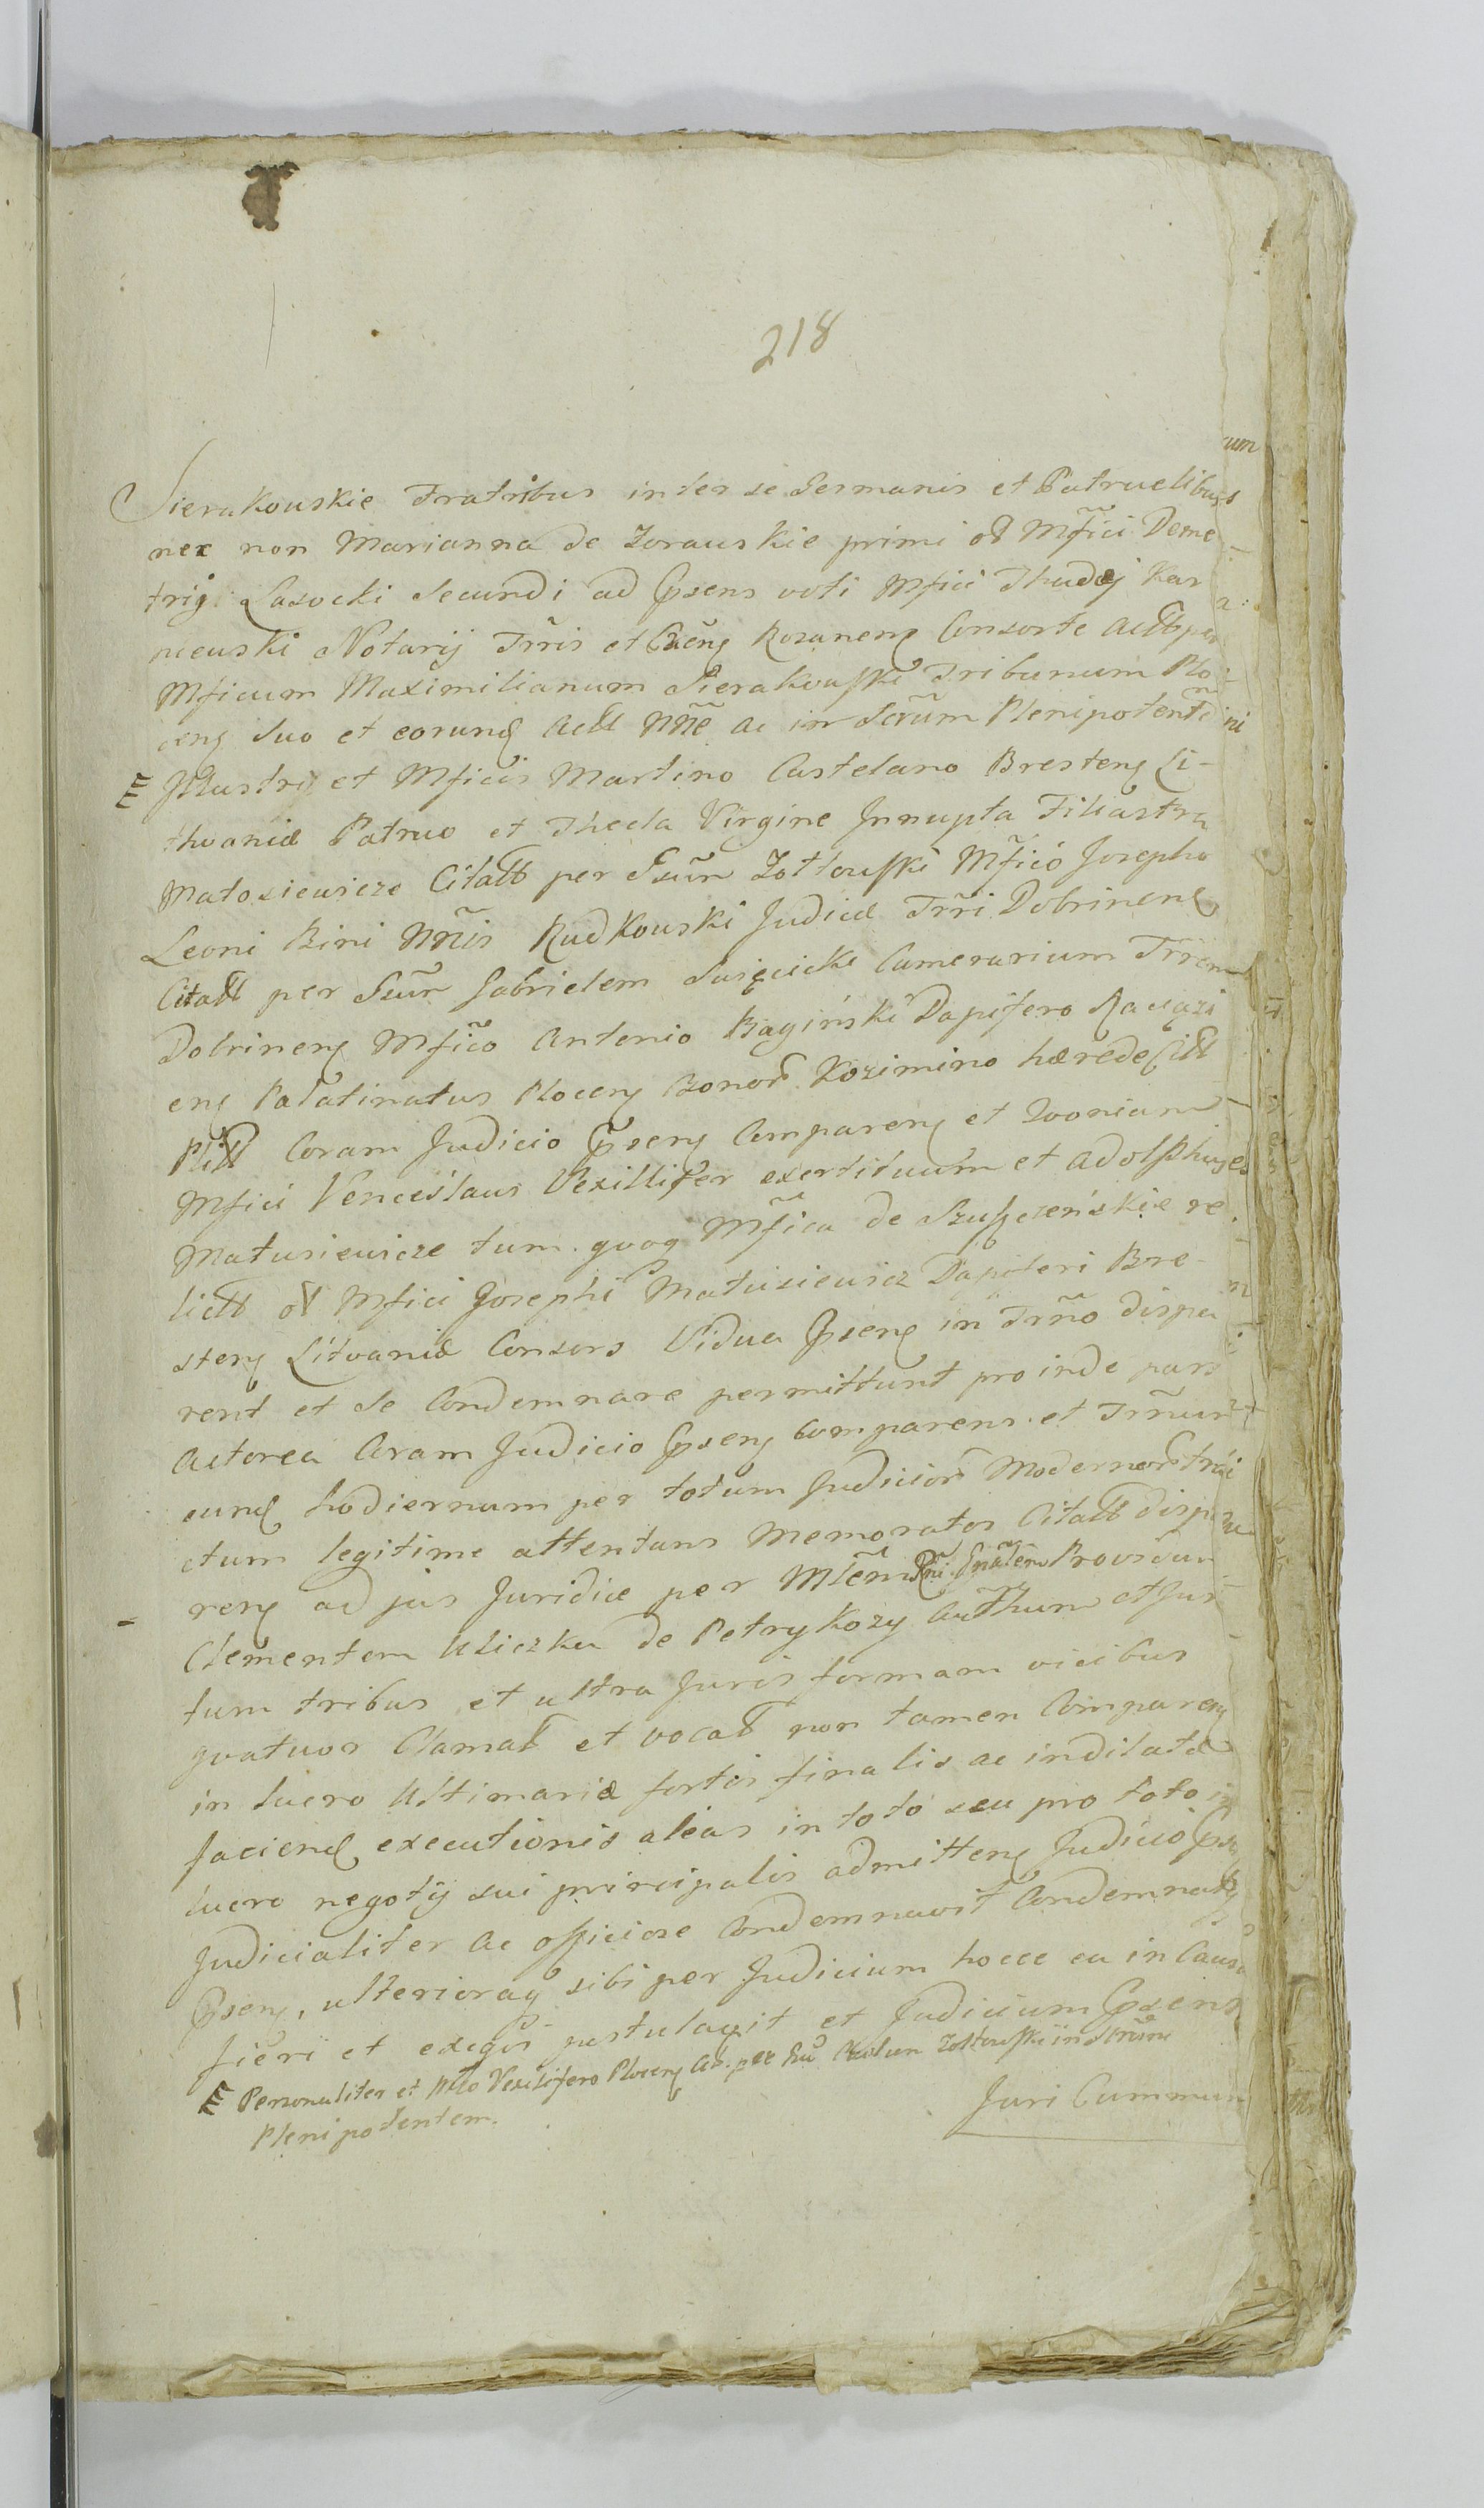 218
Sierakouskie Fratribus inter se Germanis et Patruelibus
nec non Marianna de Zorauskie primi oł Mfici Deme
trij Lasocki Secundi ad Psens voti Mfici Thadæj Kar
nieuski Notarij Trris et Rozanens Consorte Actt per
Mficum Maximilianum Sierakouski Tribunum Plo
cens suo et eorund Actt Nñe ac in Scrum Plenipotentem
Illustri et Mficis Martino Castelano Brestens Li-
thvaniæ Patruo et Thecla Virgine Innupta Filiastra
Matosieuicze Citatt per Gsum Zottouski Mfico Josepho
Leoni Bini Nñis Rudkouski Judice Trri Dobrinens
Citatt per Gsum Gabrielem Suięcicki Camerarium Trrem
Dobrinens Mfico Antonio Bagiński Dapifero Raciązi
ens Palatinatus Plocens Bonor Kozimino hærede Citt
Coram Judicio Psens Comparens et Qvoniam
Mfici Venceslaus Vexillifer exertituum et Adolphus
Matusieuicze tum qvoq Mfica de Szuszczeńskie re
lictt oł Mfici Josephi Matusieuicz Dapiferi Bre-
stens Litvaniæ Consors Vidua Psens in Trño dispa
rent et se Condemnare permittunt proinde pars
Actorea Coram Judicio Psens Comparens et Trñum
eund hodiernum per totum Judicior Modernor trac
ctum legitime attentans Memoratos Citatt dispa
rens ad jus Juridice per Mtem Rñi Gnalem Providum
Clementem Uliczka de Petrykozy Autthum et Jur
tum tribus et ultra Juris formam vicibus
qvatuor Clamat et vocat non tamen Comparens
in lucro Ultimariæ sortis finalis ac indilatæ
faciend executionis aleas in toto seu pro toto
lucro negotij sui principalis admittens Judicio Psens
Judicialiter ac officiose Condemnavit Condemnatq
Psens, ulterioraq sibi per Judicium hocce ea in Causa
fieri et exeqvi postulavit et Judicium Psens
Personaliter et Mfco Vexilifero Plocens per Zottouski in
Plenipotentem.
Juri Cummun